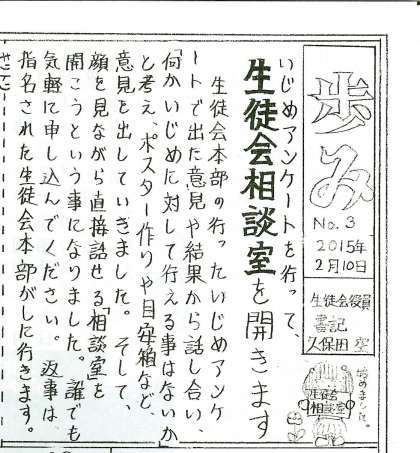 歩み
No.3
2015年
2月10日
生徒会役員
書記
久保田 空
始めました。
生徒会
相談室
いじめアンケートを行って、
生徒会相談室を開きます
生徒会本部の行ったいじめアンケ
ートで出た意見や結果から話し合い、
「何かいじめに対して行える事はないか」
と考え、ポスター作りや目安箱など、
意見を出していきました。そして、
顔を見ながら直接話せる「相談室」を
開こうという事になりました。誰でも
気軽に申し込んでください。返事は、
指名された生徒会本部がしに行きます。